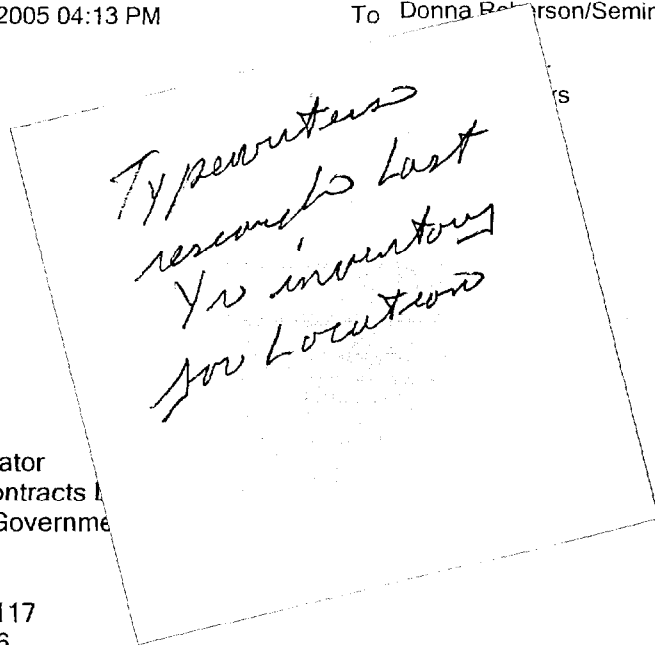 2005 04:13 PM To Donna Ro rson/Semin
rs
Typewriters
research Last
Yr inventory
for Location
ator
ontracts
Governme
117
6